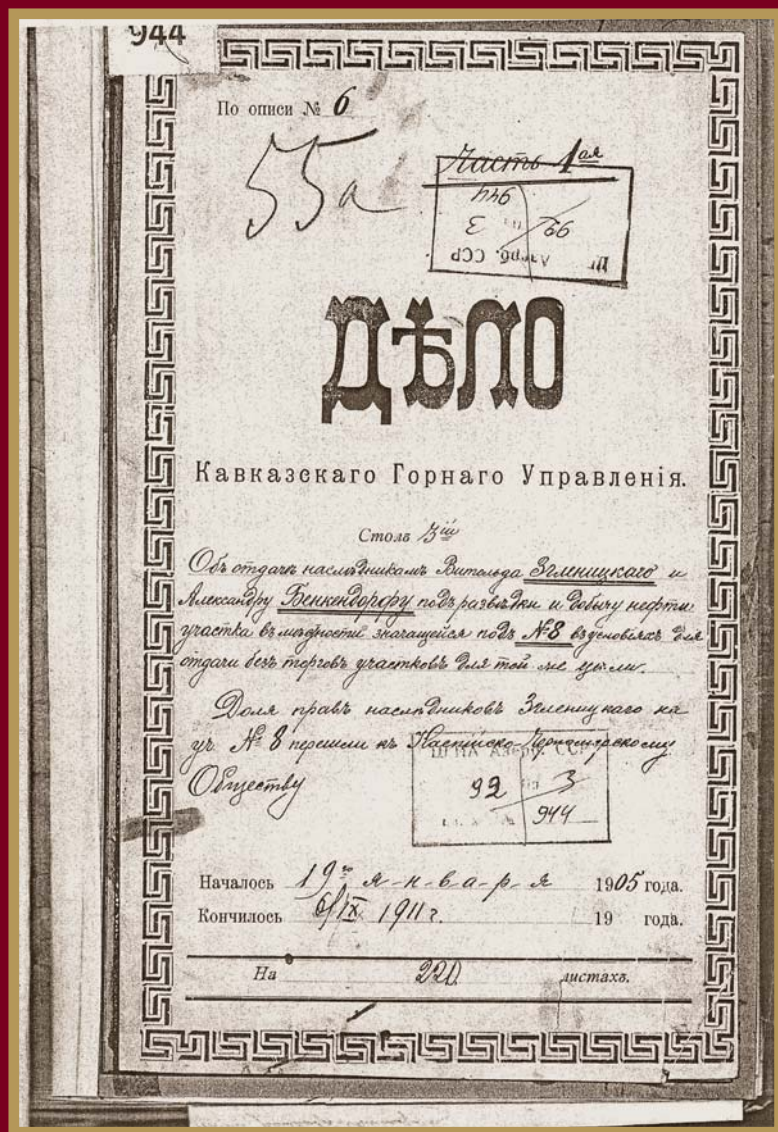 944
По описи № 6
55а
Часть 1ая
944
3 99
Азерб. ССР
ДѢЛО
Кавказскаго Горнаго Управленія.
Столъ 3ій
Объ отдачѣ наслѣдникамъ Витольда Згленицкаго и
Александру Бенкендорфу подъ развѣдки и добычу нефти
участка въ мѣстности значащейся подъ № 8 въ условіяхъ для
отдачи безъ торговъ участковъ для той-же цѣли.
Доля правъ наслѣдниковъ Згленицкаго на
уч. № 8 перешли къ Каспійско-Черноморскому
ЦГИА Азерб. ССР
Обществу
92 оп 3
944
Началось 19го я-н-в-а-р-я 1905 года.
Кончилось 6/IX 1911 г. 19 года.
На 220 листахъ.